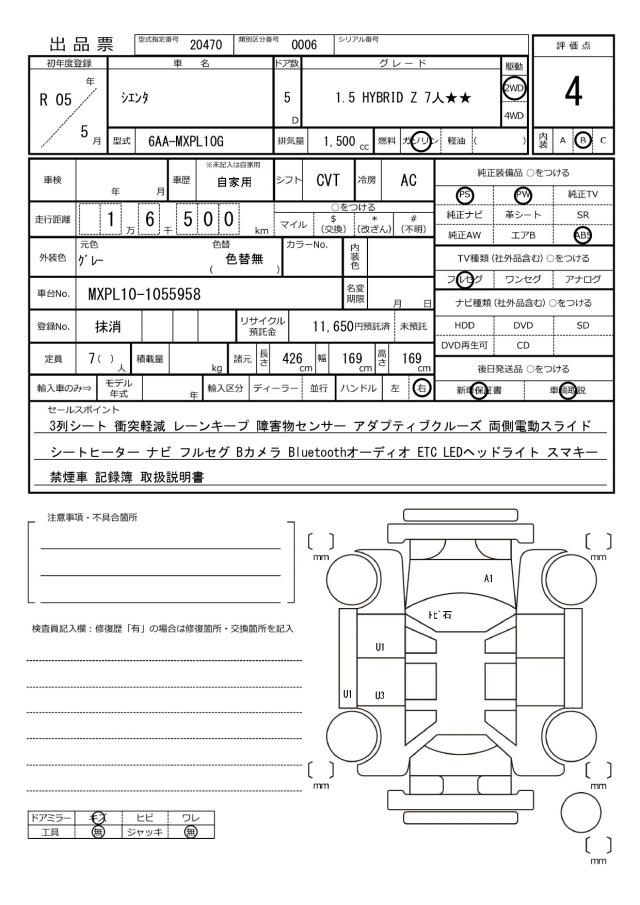 出品票 型式指定番号 20470 類別区分番号 0006 シリアル番号
評価点
4
内装 A B C
初年度登録 車名 ドア数 グレード 駆動
R 05 年 5 月 シエンタ 5 D 1.5 HYBRID Z 7人★★ 2WD 4WD
型式 6AA-MXPL10G 排気量 1,500 cc 燃料 ガソリン 軽油 ( )
車検 年 月 車歴 ※未記入は自家用 自家用 シフト CVT 冷房 AC
走行距離 1 万 6 千 5 0 0 km ○をつける
マイル $ (交換) * (改ざん) # (不明)
外装色 元色 グレー 色替 ( 色替無 ) カラーNo. 内装色
車台No. MXPL10-1055958 名変期限 月 日
登録No. 抹消 リサイクル預託金 11,650円預託済 未預託
定員 7( )人 積載量 kg 諸元 長さ 426 cm 幅 169 cm 高さ 169 cm
輸入車のみ⇒ モデル年式 年 輸入区分 ディーラー 並行 ハンドル 左 右
純正装備品 ○をつける
PS PW 純正TV
純正ナビ 革シート SR
純正AW エアB ABS
TV種類(社外品含む) ○をつける
フルセグ ワンセグ アナログ
ナビ種類(社外品含む) ○をつける
HDD DVD SD
DVD再生可 CD
後日発送品 ○をつける
新車保証書 車輌取説
セールスポイント
3列シート 衝突軽減 レーンキープ 障害物センサー アダプティブクルーズ 両側電動スライド
シートヒーター ナビ フルセグ Bカメラ Bluetoothオーディオ ETC LEDヘッドライト スマキー
禁煙車 記録簿 取扱説明書
注意事項・不具合箇所
検査員記入欄:修復歴「有」の場合は修復箇所・交換箇所を記入
ドアミラー キズ ヒビ ワレ
工具 無 ジャッキ 無
[ ] mm
[ ] mm
A1
トビ石
U1
U1 U3
[ ] mm
[ ] mm
[ ] mm